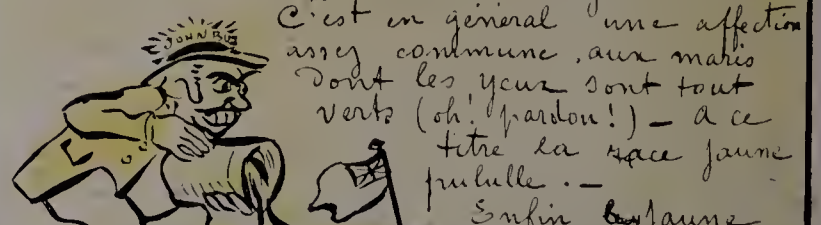 JOHN BULL
C'est en général une affection
assez commune, aux maris
Dont les yeux sont tout
verts (oh! pardon!) — A ce
titre la race jaune
pullule. —
Enfin jaune